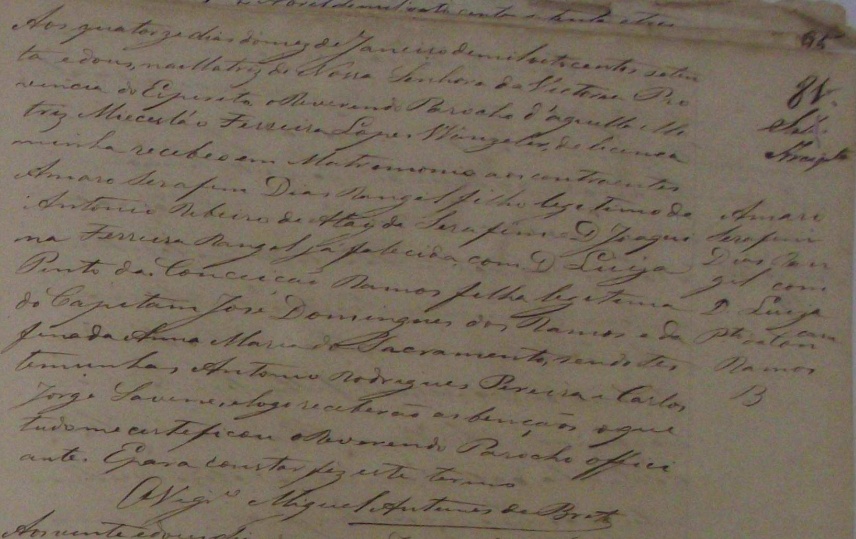 de mil oitocentos e setenta e tres
65
Aos quatorze dias do mez de Janeiro de mil oitocentos seten
ta e dous, na Matriz de Nossa Senhora da Victoria Pro
vincia do Espirito o Reverendo Parocho d'aquella Ma
triz Miecesláo Ferreira Lopes Wanzeler, de licença
minha recebeo em Matrimonio aos contraentes
Amaro Serafim Dias Rangel filho legitimo de
Antonio Ribeiro de Atayde Serafim e D Joaqui
na Ferreira Rangel já falecida, com D Luiza
Pinto da Conceicão Ramos filha legitima
do Capitam José Domingues dos Ramos e da
finada Anna Maria do Sacramento, sendo tes
temunhas Antonio Rodrigues Pereira e Carlos
Jorge e logo receberão as benção o que
tudo me certeficou o Reverendo Parocho offici
ante. E para constar fez este termo
O Vigrº Miguel Antunes de Brito
Aos vinte e dous di
Amaro
Serafim
Dias Ran
gel com
D. Luiza
Ramos
B